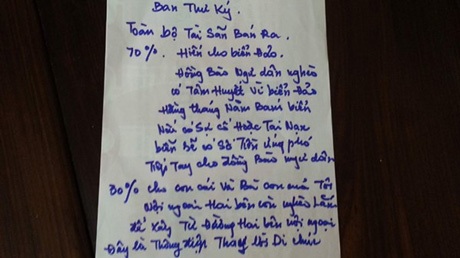 Ban Thư Ký
Toàn bộ Tài Sản Bán Ra.
70%. Hiến cho biển Đảo.
Đồng Bào Ngư dân nghèo
có Tâm Huyết Vì biển Đảo
Hằng tháng Năm Bám biển
Nếu có Sự cố Hoặc Tai Nạn
bên sẽ có Số Tiền ứng phó
Tiếp Tay cho Đồng Bào ngư dân
30% cho con cái Và Bà con của Tôi
Nội ngoại Hai bên còn nghèo Lắm
Để Xây Từ Đường Hai bên nội ngoại
Đây là Thông Điệp Thay lời Di chúc